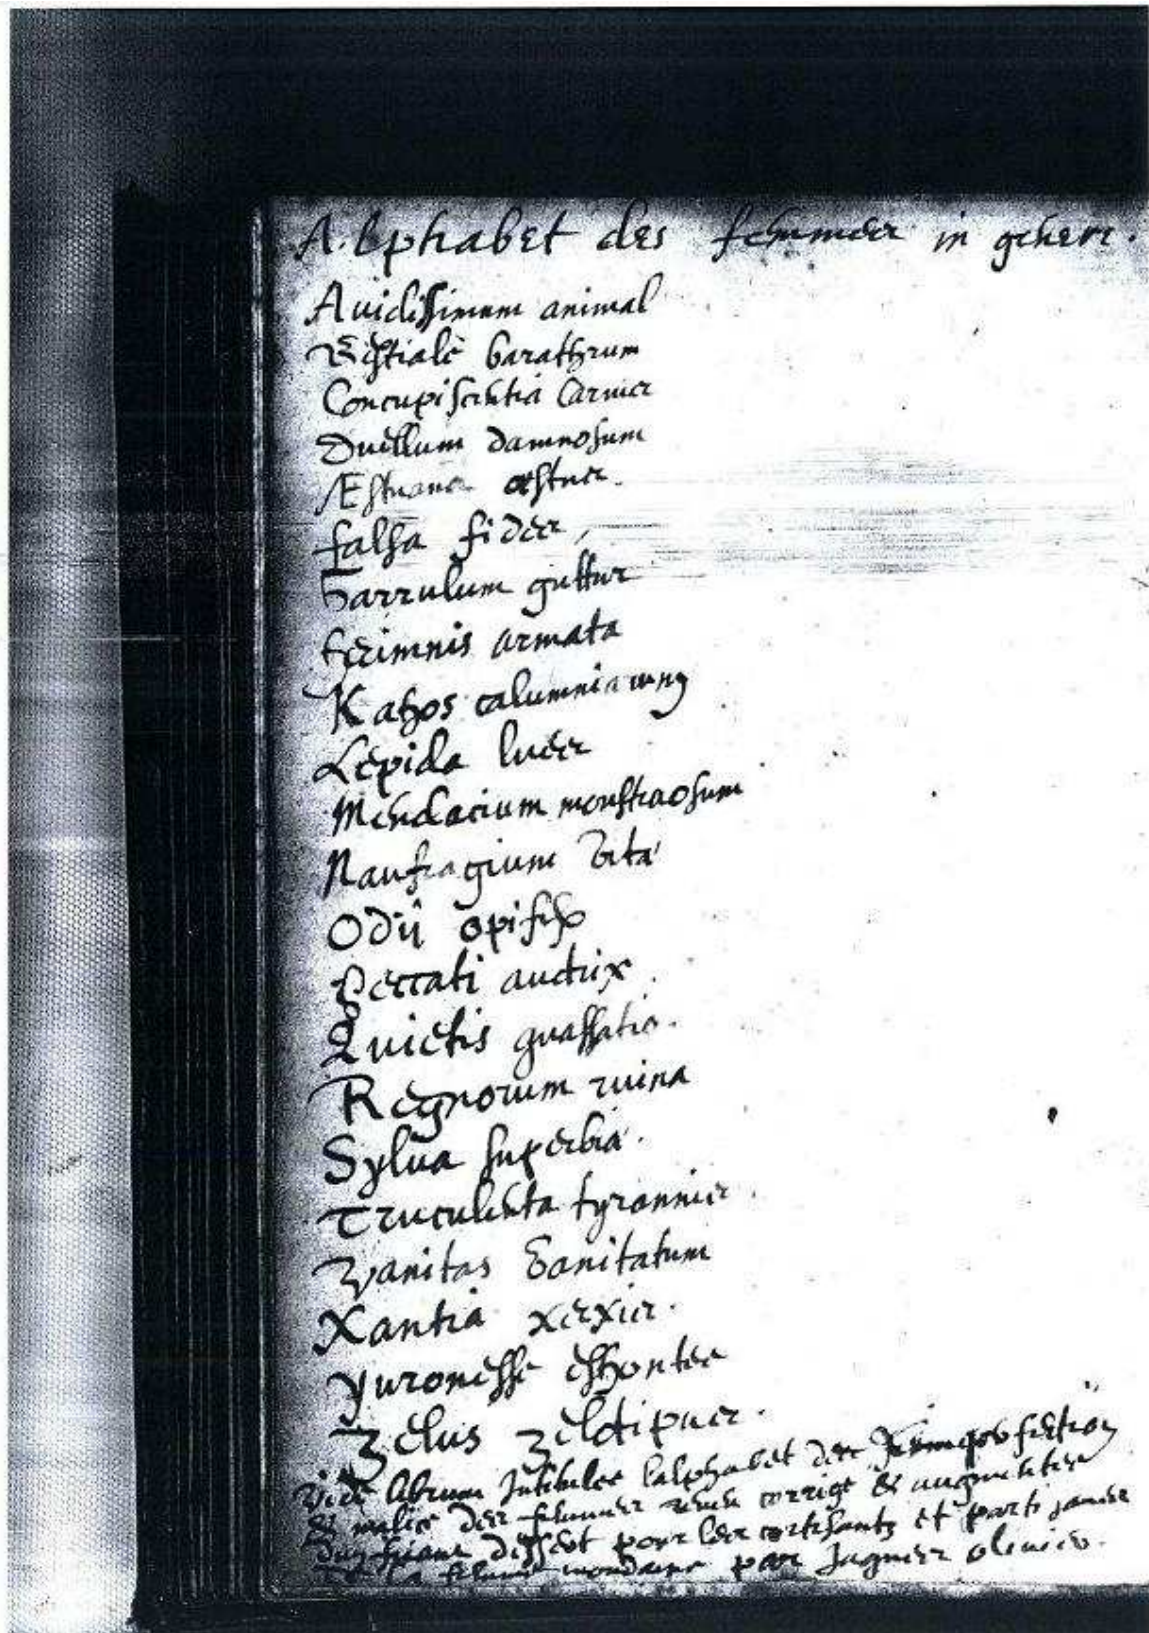 Alphabet des femmes in genere.
Auidissimum animal
Bestiale barathrum
Concupiscentia carnis
Duellum damnosum
Æstuans æstus.
falsa fides,
Garrulum guttur
armata
Kahos calumniarum
Lepida lues
Mendacium monstraosum
Naufragium vitæ
Odii opifex
Peccati auctrix
Quietis quassatio.
Regnorum ruina
Sylua superbiæ.
Truculenta tyrannis.
Vanitas Vanitatum
Xantia xerxis.
yuronesse eshontee
Zelus zelotipus.
Vide librum Intitulee lalphabet de
& malice des femmes corrige & augmentee
dun friant dessert pour les cortisants et partisans
de la femme mondaine par Jaques oliuier.